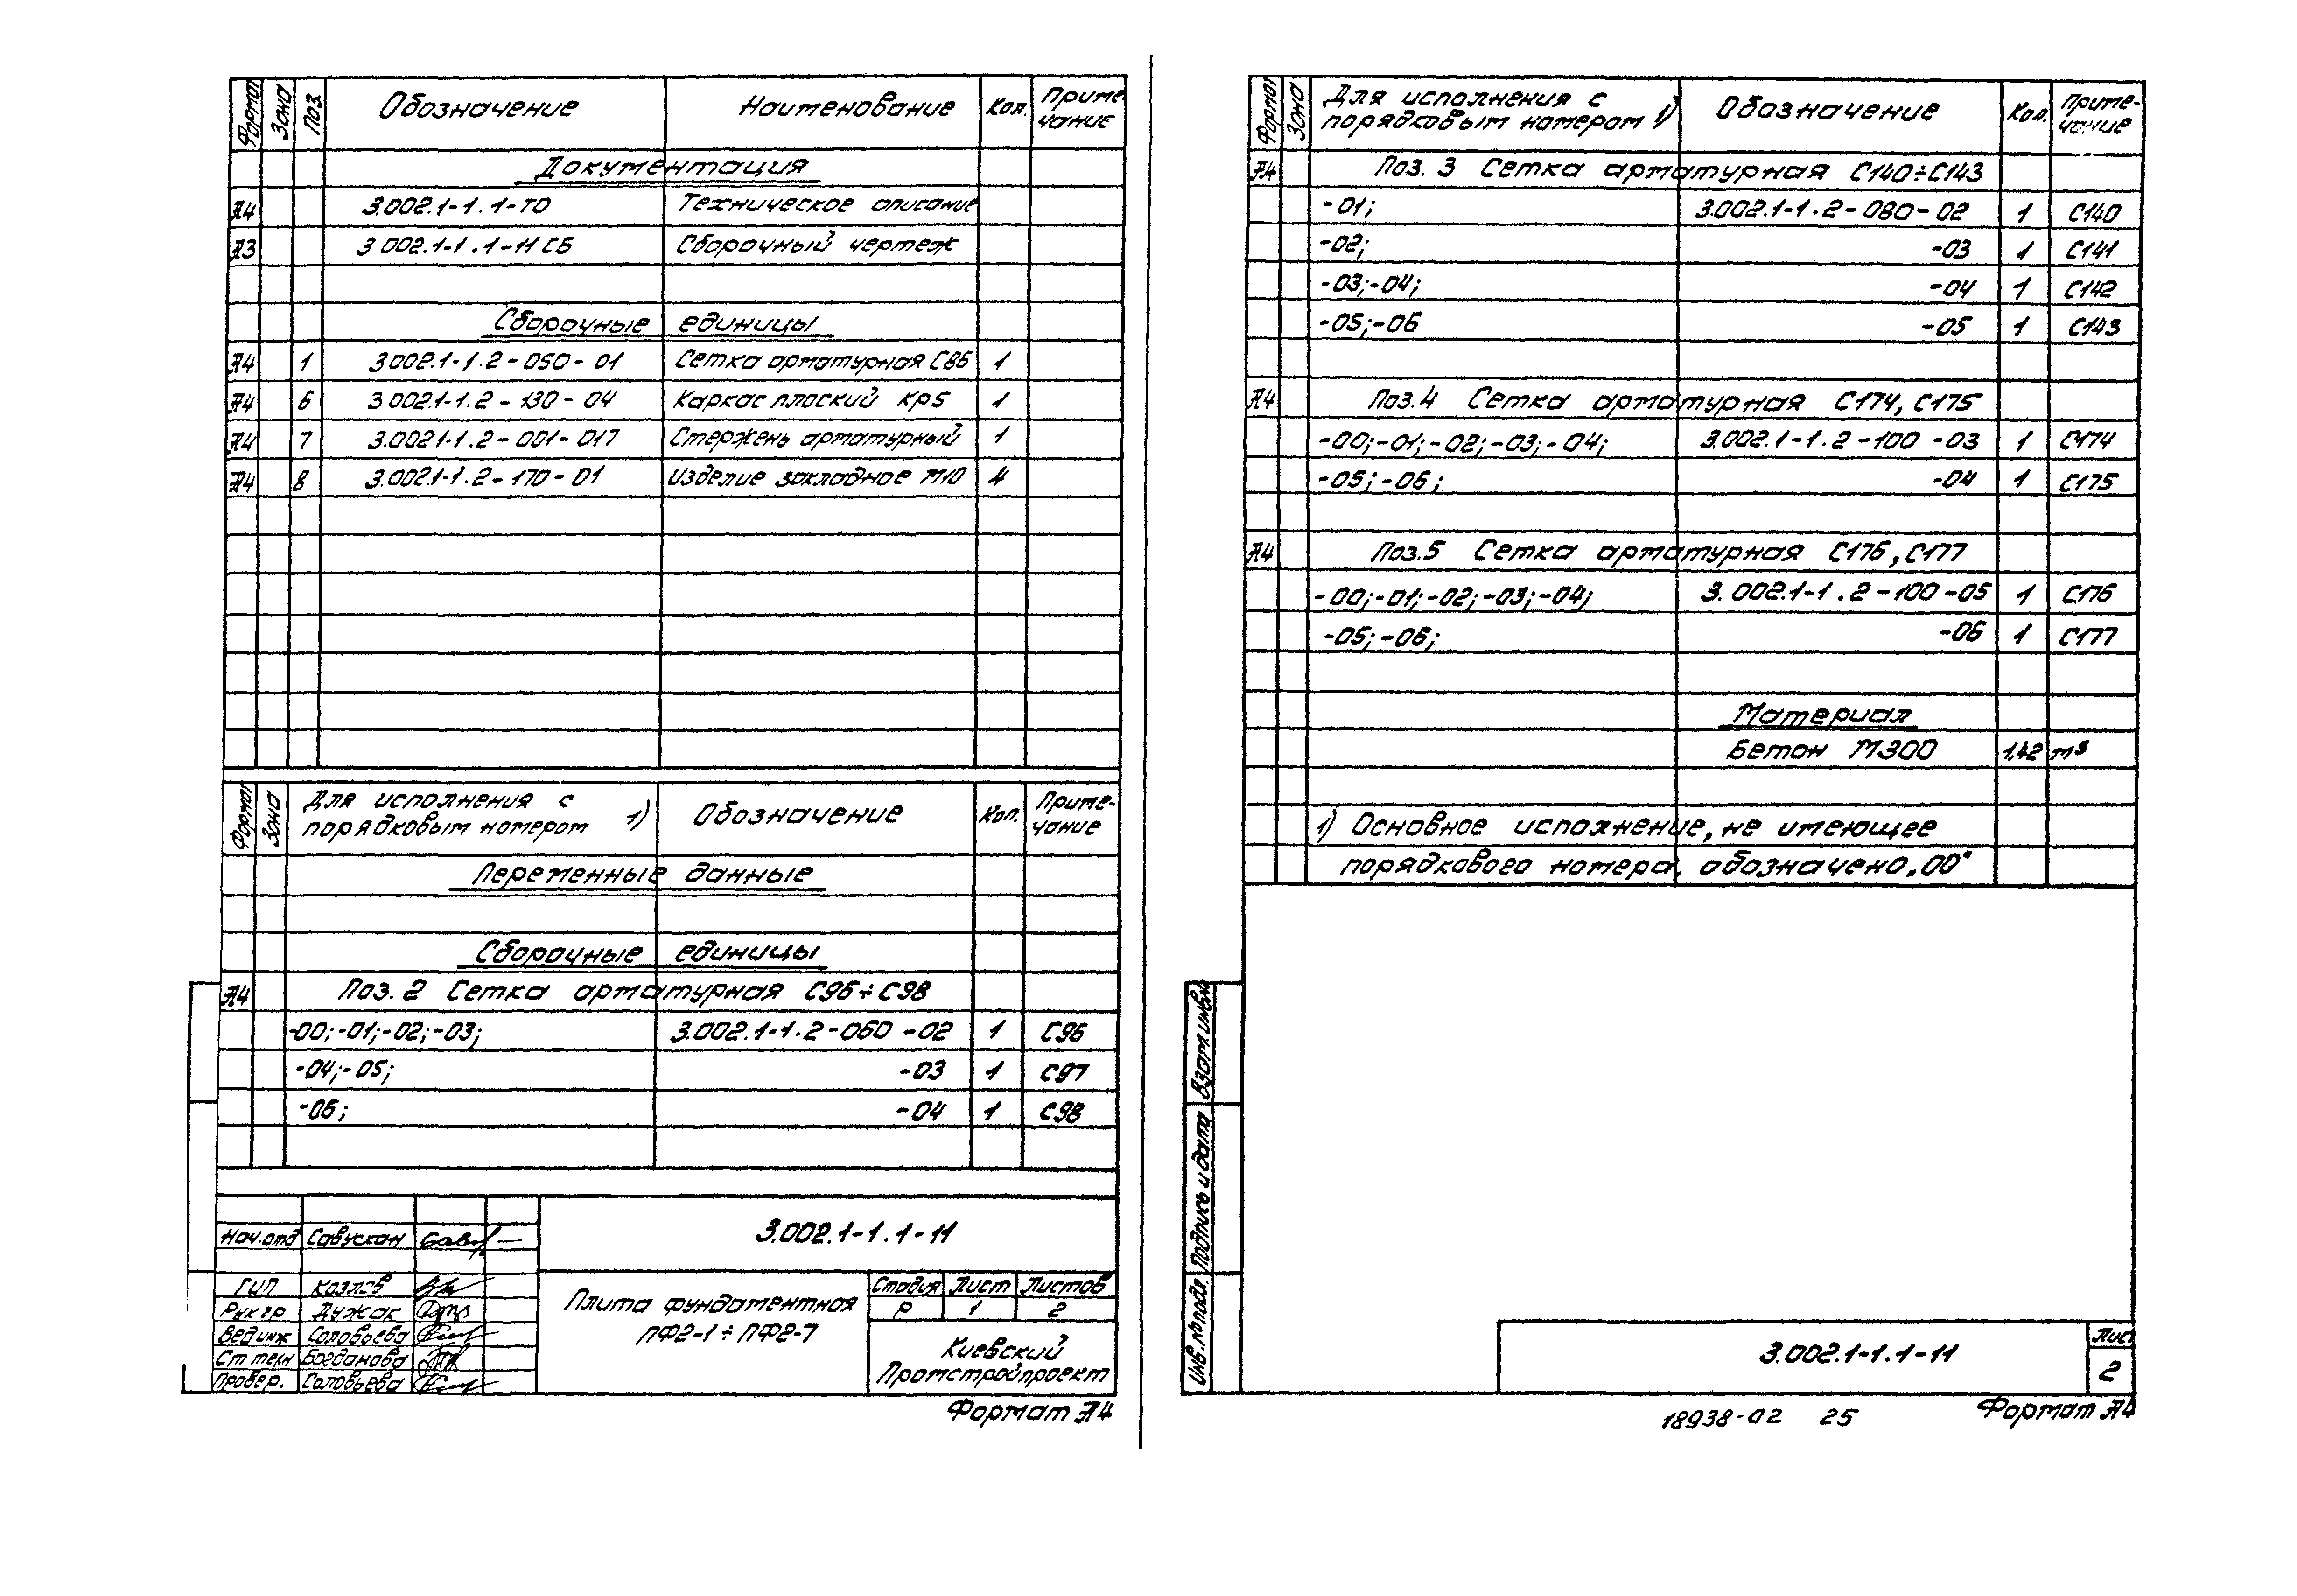 Формат Зона Поз. Обозначение Наименование Кол. Приме-
чание
Документация
А4 3.002.1-1.1-ТО Техническое описание
А3 3.002.1-1.1-11СБ Сборочный чертеж
Сборочные единицы
А4 1 3.002.1-1.2-050-01 Сетка арматурная С86 1
А4 6 3.002.1-1.2-130-04 Каркас плоский КР5 1
А4 7 3.002.1-1.2-001-017 Стержень арматурный 1
А4 8 3.002.1-1.2-170-01 Изделие закладное М10 4
Формат Зона Для исполнения с
порядковым номером 1) Обозначение Кол. Приме-
чание
Переменные данные
Сборочные единицы
А4 Поз. 2 Сетка арматурная С96÷С98
-00;-01;-02;-03; 3.002.1-1.2-060-02 1 С96
-04;-05; -03 1 С97
-06; -04 1 С98
3.002.1-1.1-11
Нач.отд Савускан
ГИП Козлов
Рук гр Дужак
Вед инж Соловьева
Ст техн Богданова
Провер. Соловьева
Плита фундаментная
ПФ2-1÷ПФ2-7
Стадия Лист Листов
Р 1 2
Киевский
Промстройпроект
Формат А4
Формат Зона Для исполнения с
порядковым номером 1) Обозначение Кол. Приме-
чание
А4 Поз. 3 Сетка арматурная С140÷С143
-01; 3.002.1-1.2-080-02 1 С140
-02; -03 1 С141
-03;-04; -04 1 С142
-05;-06 -05 1 С143
А4 Поз.4 Сетка арматурная С174, С175
-00;-01;-02;-03;-04; 3.002.1-1.2-100-03 1 С174
-05;-06; -04 1 С175
А4 Поз.5 Сетка арматурная С176, С177
-00;-01;-02;-03;-04; 3.002.1-1.2-100-05 1 С176
-05;-06; -06 1 С177
Материал
Бетон М300 1,42 м³
1) Основное исполнение, не имеющее
порядкового номера, обозначено „00"
Инв.№ подл. Подпись и дата Взам.инв.№
3.002.1-1.1-11
Лист
2
18938-02 25
Формат А4